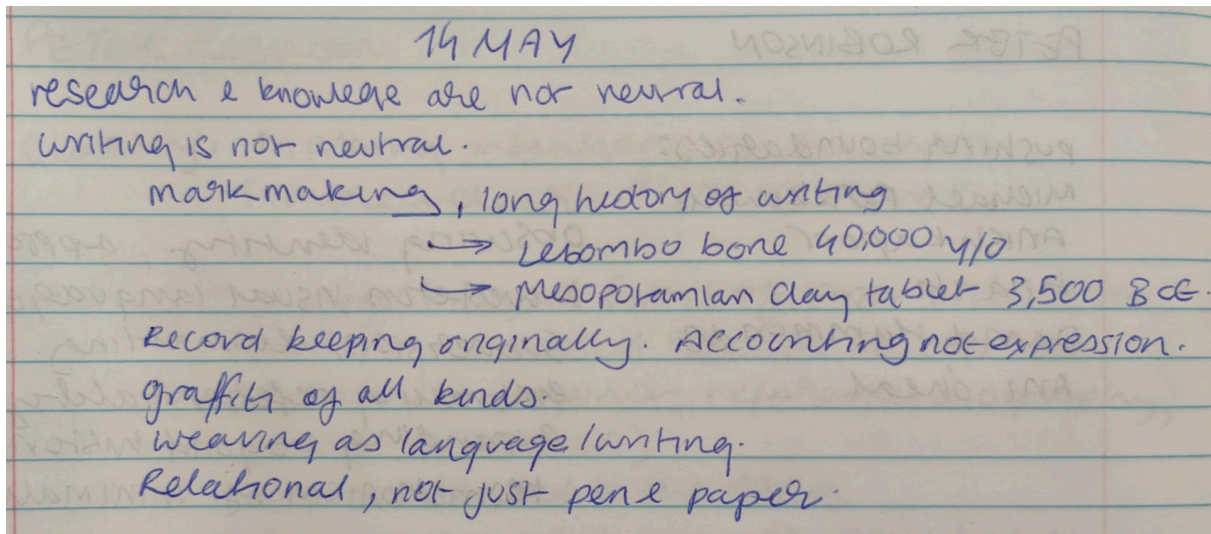 14 MAY
research & knowlege are not neutral.
writing is not neutral.
mark making, long history of writing
→ Lebombo bone 40,000 y/o
→ Mesopotamian clay tablet 3,500 BCE.
Record keeping originally. Accounting not expression.
graffiti of all kinds.
weaving as language/writing.
Relational, not just pen & paper.